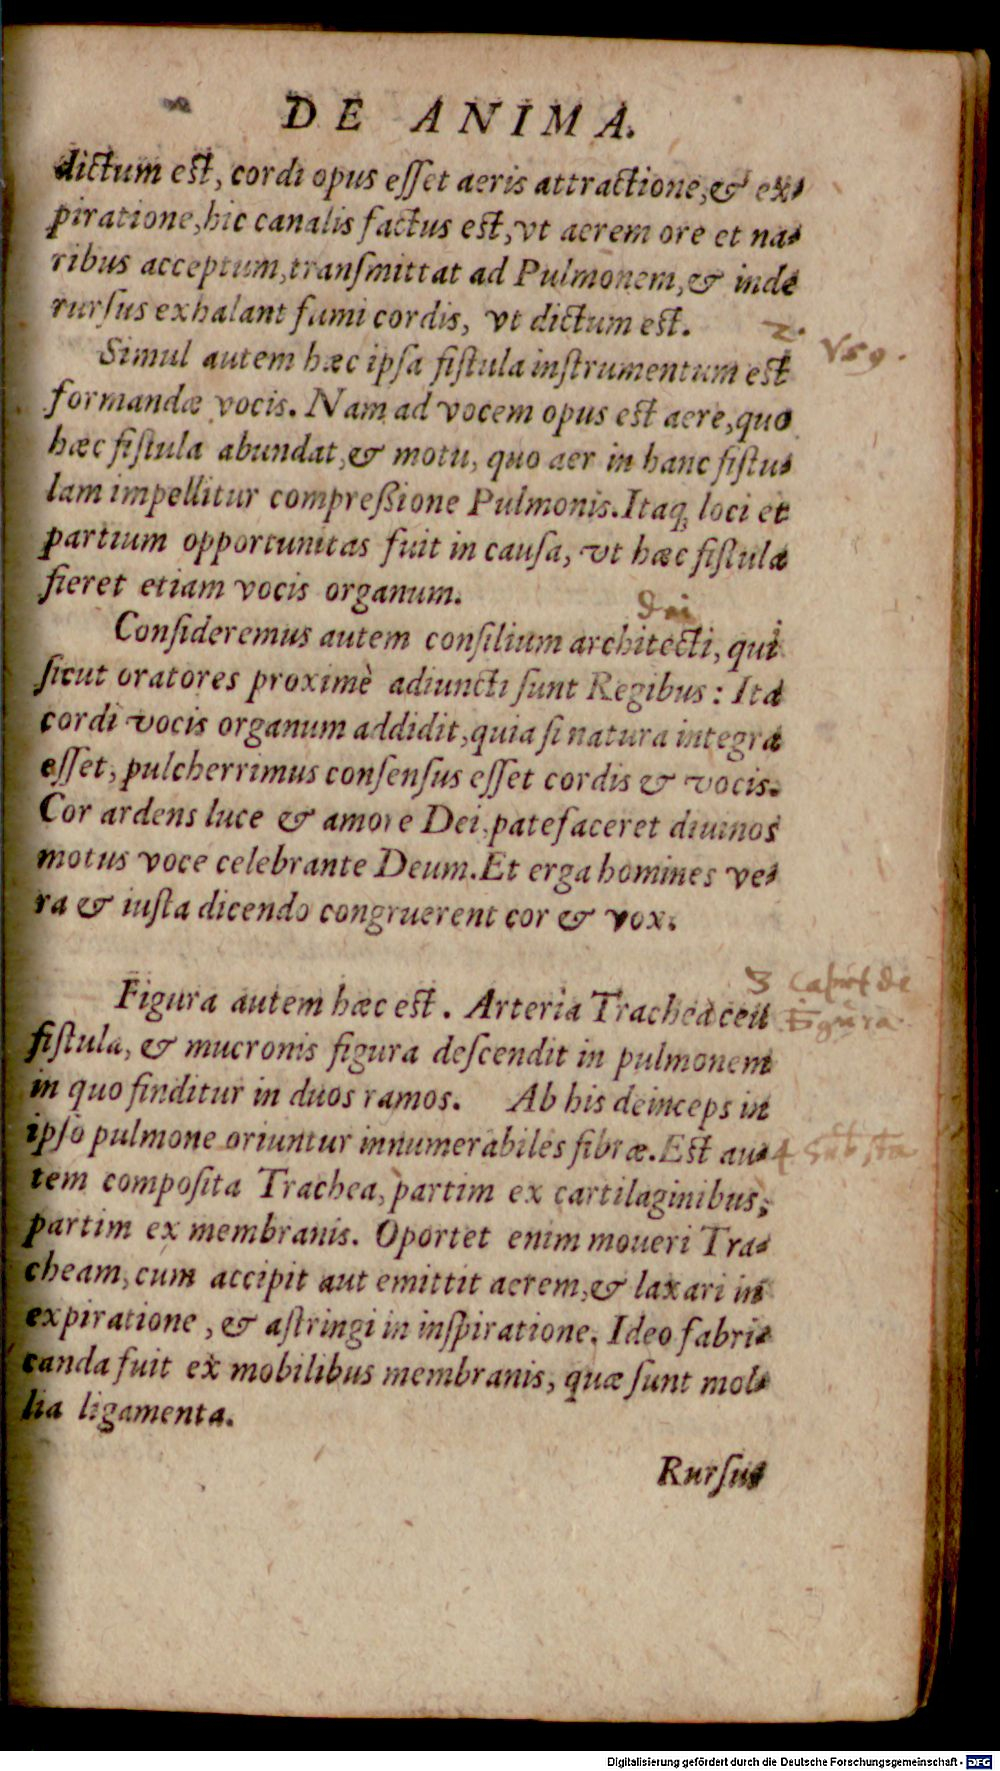 DE ANIMA.
dictum est, cordi opus eſſet aeris attractione,& ex-
piratione,hic canalis factus est,vt aerem ore et na-
ribus acceptum,tranſmittat ad Pulmonem,& inde
rurſus exhalant fumi cordis, vt dictum est.
2.
Vſꝯ.
Simul autem hæc ipſa fiſtula inſtrumentum est
formandæ vocis. Nam ad vocem opus est aere,quo
hæc fiſtula abundat,& motu, quo aer in hanc fiſtu-
lam impellitur compreßione Pulmonis.Itaq; loci et
partium opportunitas fuit in cauſa, vt hæc fiſtula
fieret etiam vocis organum.
Dei
Conſideremus autem conſilium architecti, qui
ſicut oratores proximè adiuncti ſunt Regibus: Ita
cordi vocis organum addidit,quia ſi natura integra
eſſet, pulcherrimus conſenſus eſſet cordis & vocis.
Cor ardens luce & amore Dei,patefaceret diuinos
motus voce celebrante Deum.Et erga homines ve-
ra & iuſta dicendo congruerent cor & vox.
3 Caput de
Figura
Figura autem hæc est. Arteria Trachea ceu
fiſtula, & mucronis figura deſcendit in pulmonem
in quo finditur in duos ramos. Ab his deinceps in
ipſo pulmone oriuntur innumerabiles fibræ.Est au-
4. Subſta
tem compoſita Trachea, partim ex cartilaginibus,
partim ex membranis. Oportet enim moueri Tra-
cheam, cum accipit aut emittit aerem,& laxari in
expiratione, & aſtringi in inſpiratione. Ideo fabri-
canda fuit ex mobilibus membranis, quæ ſunt mol-
lia ligamenta.
Rurſus
Digitalisierung gefördert durch die Deutsche Forschungsgemeinschaft - DFG